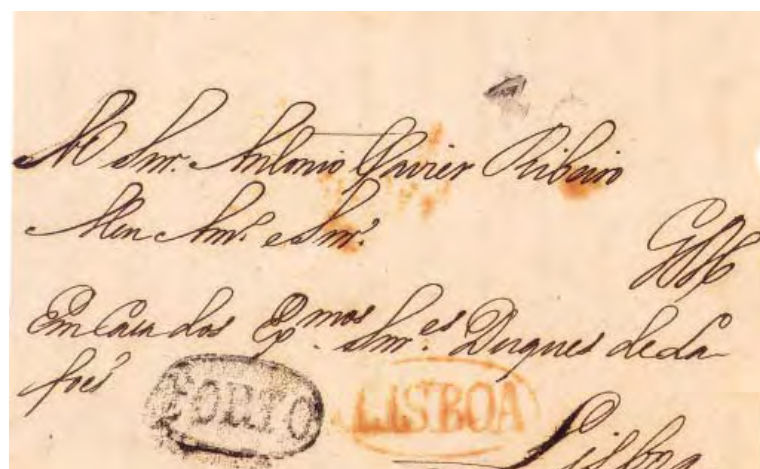 Snr. Antonio Xavier Ribeiro
Meu Am.º e Snr.
Em Casa dos Ex.mos Snr.es Duques de La-
foes
PORTO
LISBOA
Lisboa